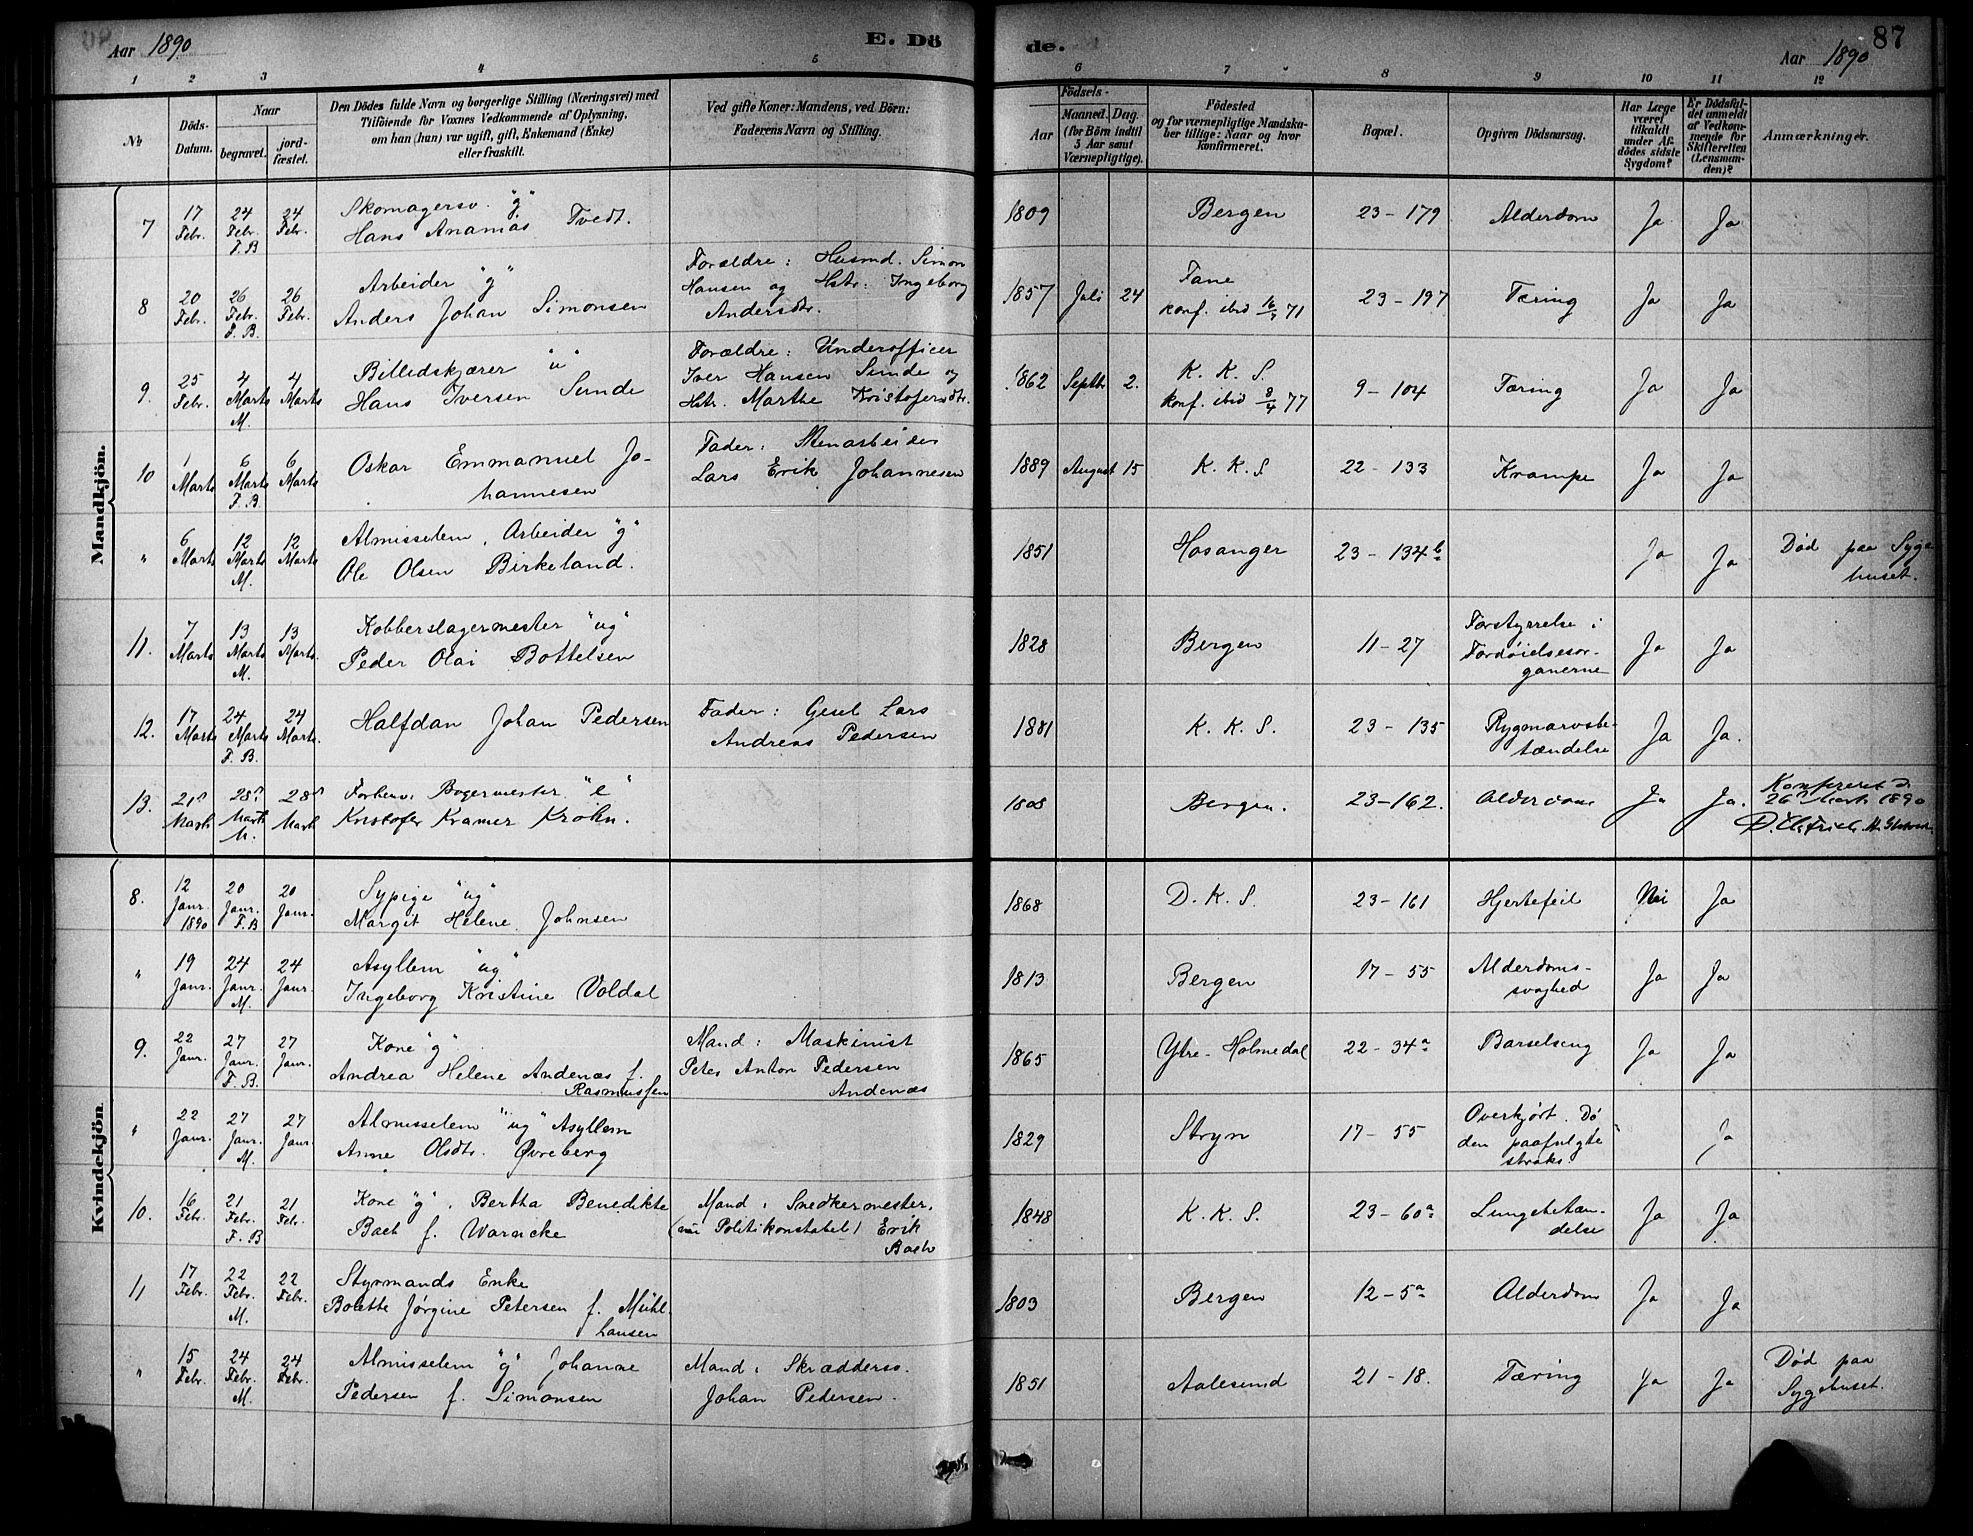 Aar 1890 E. Dö de. Aar 1890 87
1 2 3 4 5 6 7 8 9 10 11 12
№ Döds-Datum. Naar begravet. jord-fæstet.
Den Dödes fulde Navn og borgerlige Stilling (Næringsvei) med
Tilföiende for Voxnes Vedkommende af Oplysning,
om han (hun) var ugift, gift, Enkemand (Enke)
eller fraskilt.
Ved gifte Koner: Mandens, ved Börn:
Faderens Navn og Stilling.
Födsels-
Aar Maaned. Dag.
(for Börn indtil
3 Aar samt
Værnepligtige).
Födested
og for værnepligtige Mandska-
ber tillige: Naar og hvor
Konfirmeret.
Bopæl.
Opgiven Dödsaarsag.
Har Læge
været
tilkaldt
under Af-
dödes sidste
Sygdom?
Er Dödsfal-
det anmeldt
af Vedkom-
mende for
Skifteretten
(Lensman-
den)?
Anmærkninger.
Mandkjön.
7 17 Febr. 24 Febr. F.B 24 Febr.
Skomagersv. "g"
Hans Ananias Tvedt.
1809 Bergen 23-179 Alderdom Ja Ja
8 20 Febr. 26 Febr. F.B. 26 Febr.
Arbeider "g"
Anders Johan Simonsen
Forældre: Husmd. Simon
Hansen og Hstr. Ingeborg
Andersdtr.
1857 Juli 24 Fane
konf. ibid 16/7 71
23-197 Tæring Ja Ja
9. 25 Febr. 4 Marts M. 4 Marts
Billedskjærer "u"
Hans Iversen Sunde
Forældre: Underofficer
Iver Hansen Sunde og
Hstr. Marthe Kristofersdtr.
1862 Septbr. 2. K. K. S.
konf. ibid 8/4 77
9-104 Tæring Ja Ja
10 1 Marts 6 Marts F.B. 6 Marts
Oskar Emmanuel Jo-
hannesen
Fader: Stenarbeider
Lars Erik Johannesen
1889 August 15 K. K. S. 22-133 Krampe Ja Ja
" 6 Marts 12 Marts M. 12 Marts
Almisselem, Arbeider "g"
Ole Olsen Birkeland.
1851 Hosanger 23-134b Ja Ja
Død paa Syge
huset.
11. 7 Marts 13 Marts M. 13 Marts.
Kobberslagermester "ug"
Peder Olai Bottelsen
1828 Bergen 11-27
Forstyrrelse i
Fordøielsesor-
ganerne
Ja Ja
12. 17 Marts 24 Marts F.B. 24 Marts.
Halfdan Johan Pedersen
Fader: Gesel Lars
Andreas Pedersen
1881 K. K. S. 23-135
Rygmarvsbe-
tændelse
Ja Ja.
13. 21d Marts 28d Marts M. 28d Marts
Forhenv. Bagermester "e"
Kristofer Kramer Krohn.
1808 Bergen. 23-162. Alderdom Ja Ja.
Konfereret d.
26d Marts 1890
Kvindekjön
8. 12 Janr. 1890 20 Janr. F.B 20 Janr.
Sypige "ug"
Margit Helene Johnsen
1868 D. K. S. 23-161 Hjertefeil Nei Ja
" 19 Janr. 24 Janr. M. 24 Janr.
Asyllem "ug"
Ingeborg Kristine Voldal
1813 Bergen 17-55
Alderdoms-
svaghed
Ja Ja
9. 22 Janr. 27 Janr. F.B. 27 Janr.
Kone "g"
Andrea Helene Andenæs f.
Rasmussen
Mand: Maskinist
Peter Anton Pedersen
Andenæs
1865 Ytre-Holmedal 22-34a Barselseng Ja Ja
" 22 Janr. 27 Janr. M. 27 Janr.
Almisselem "ug" Asyllem
Anne Olsdtr. Øvreberg
1829 Stryn 17-55
Overkjørt. Dø
den paafulgte
straks.
" Ja
10. 16 Febr. 21 Febr. F.B 21 Febr.
Kone "g". Bertha Benedikte
Bach f. Warncke
Mand: Snedkermester.
(nu Politikonstabel) Erik
Bach
1848 K. K. S. 23-60a
Lungebetæn-
delse
Ja Ja
11 17 Febr. 22 Febr. M. 22 Febr.
Styrmands Enke
Bolette Jørgine Petersen f. Mühl-
hausen
1803 Bergen 12-5a Alderdom Ja Ja
" 15 Febr. 24 Febr. M. 24 Febr.
Almisselem "g" Johanne
Pedersen f. Simonsen
Mand: Skræddersv.
Johan Pedersen.
1851 Aalesund 21-18. Tæring Ja Ja
Død paa
Sygehuset.